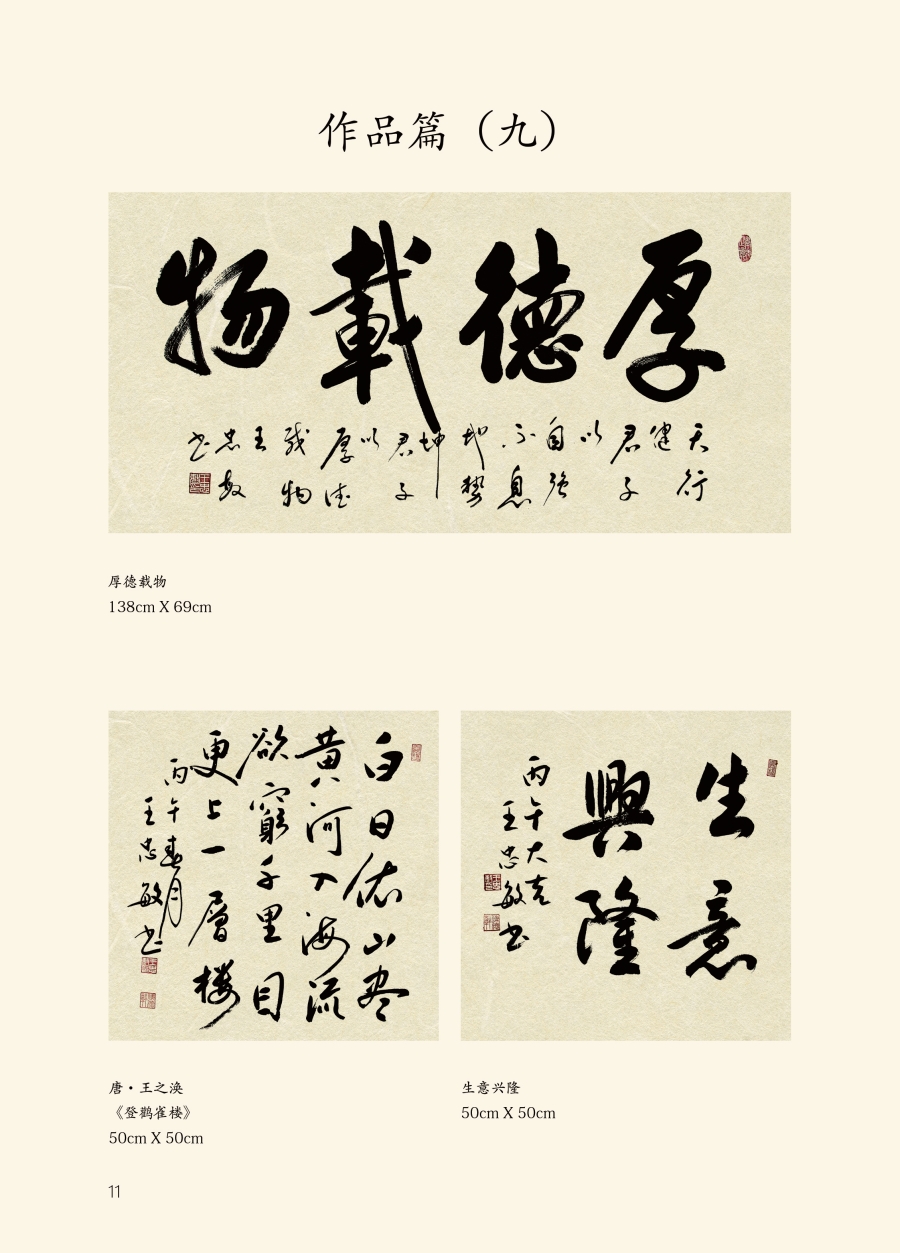 作品篇（九）
厚德載物
天行
健
君子
以
自强
不息
地势
坤
君子
以
厚德
载物
王
忠敏
书
厚德载物
138cm X 69cm
白日依山尽
黄河入海流
欲窮千里目
更上一層楼
丙午春月
王忠敏书
生意
興隆
丙午大吉
王忠敏书
唐·王之涣
《登鹳雀楼》
50cm X 50cm
生意兴隆
50cm X 50cm
11